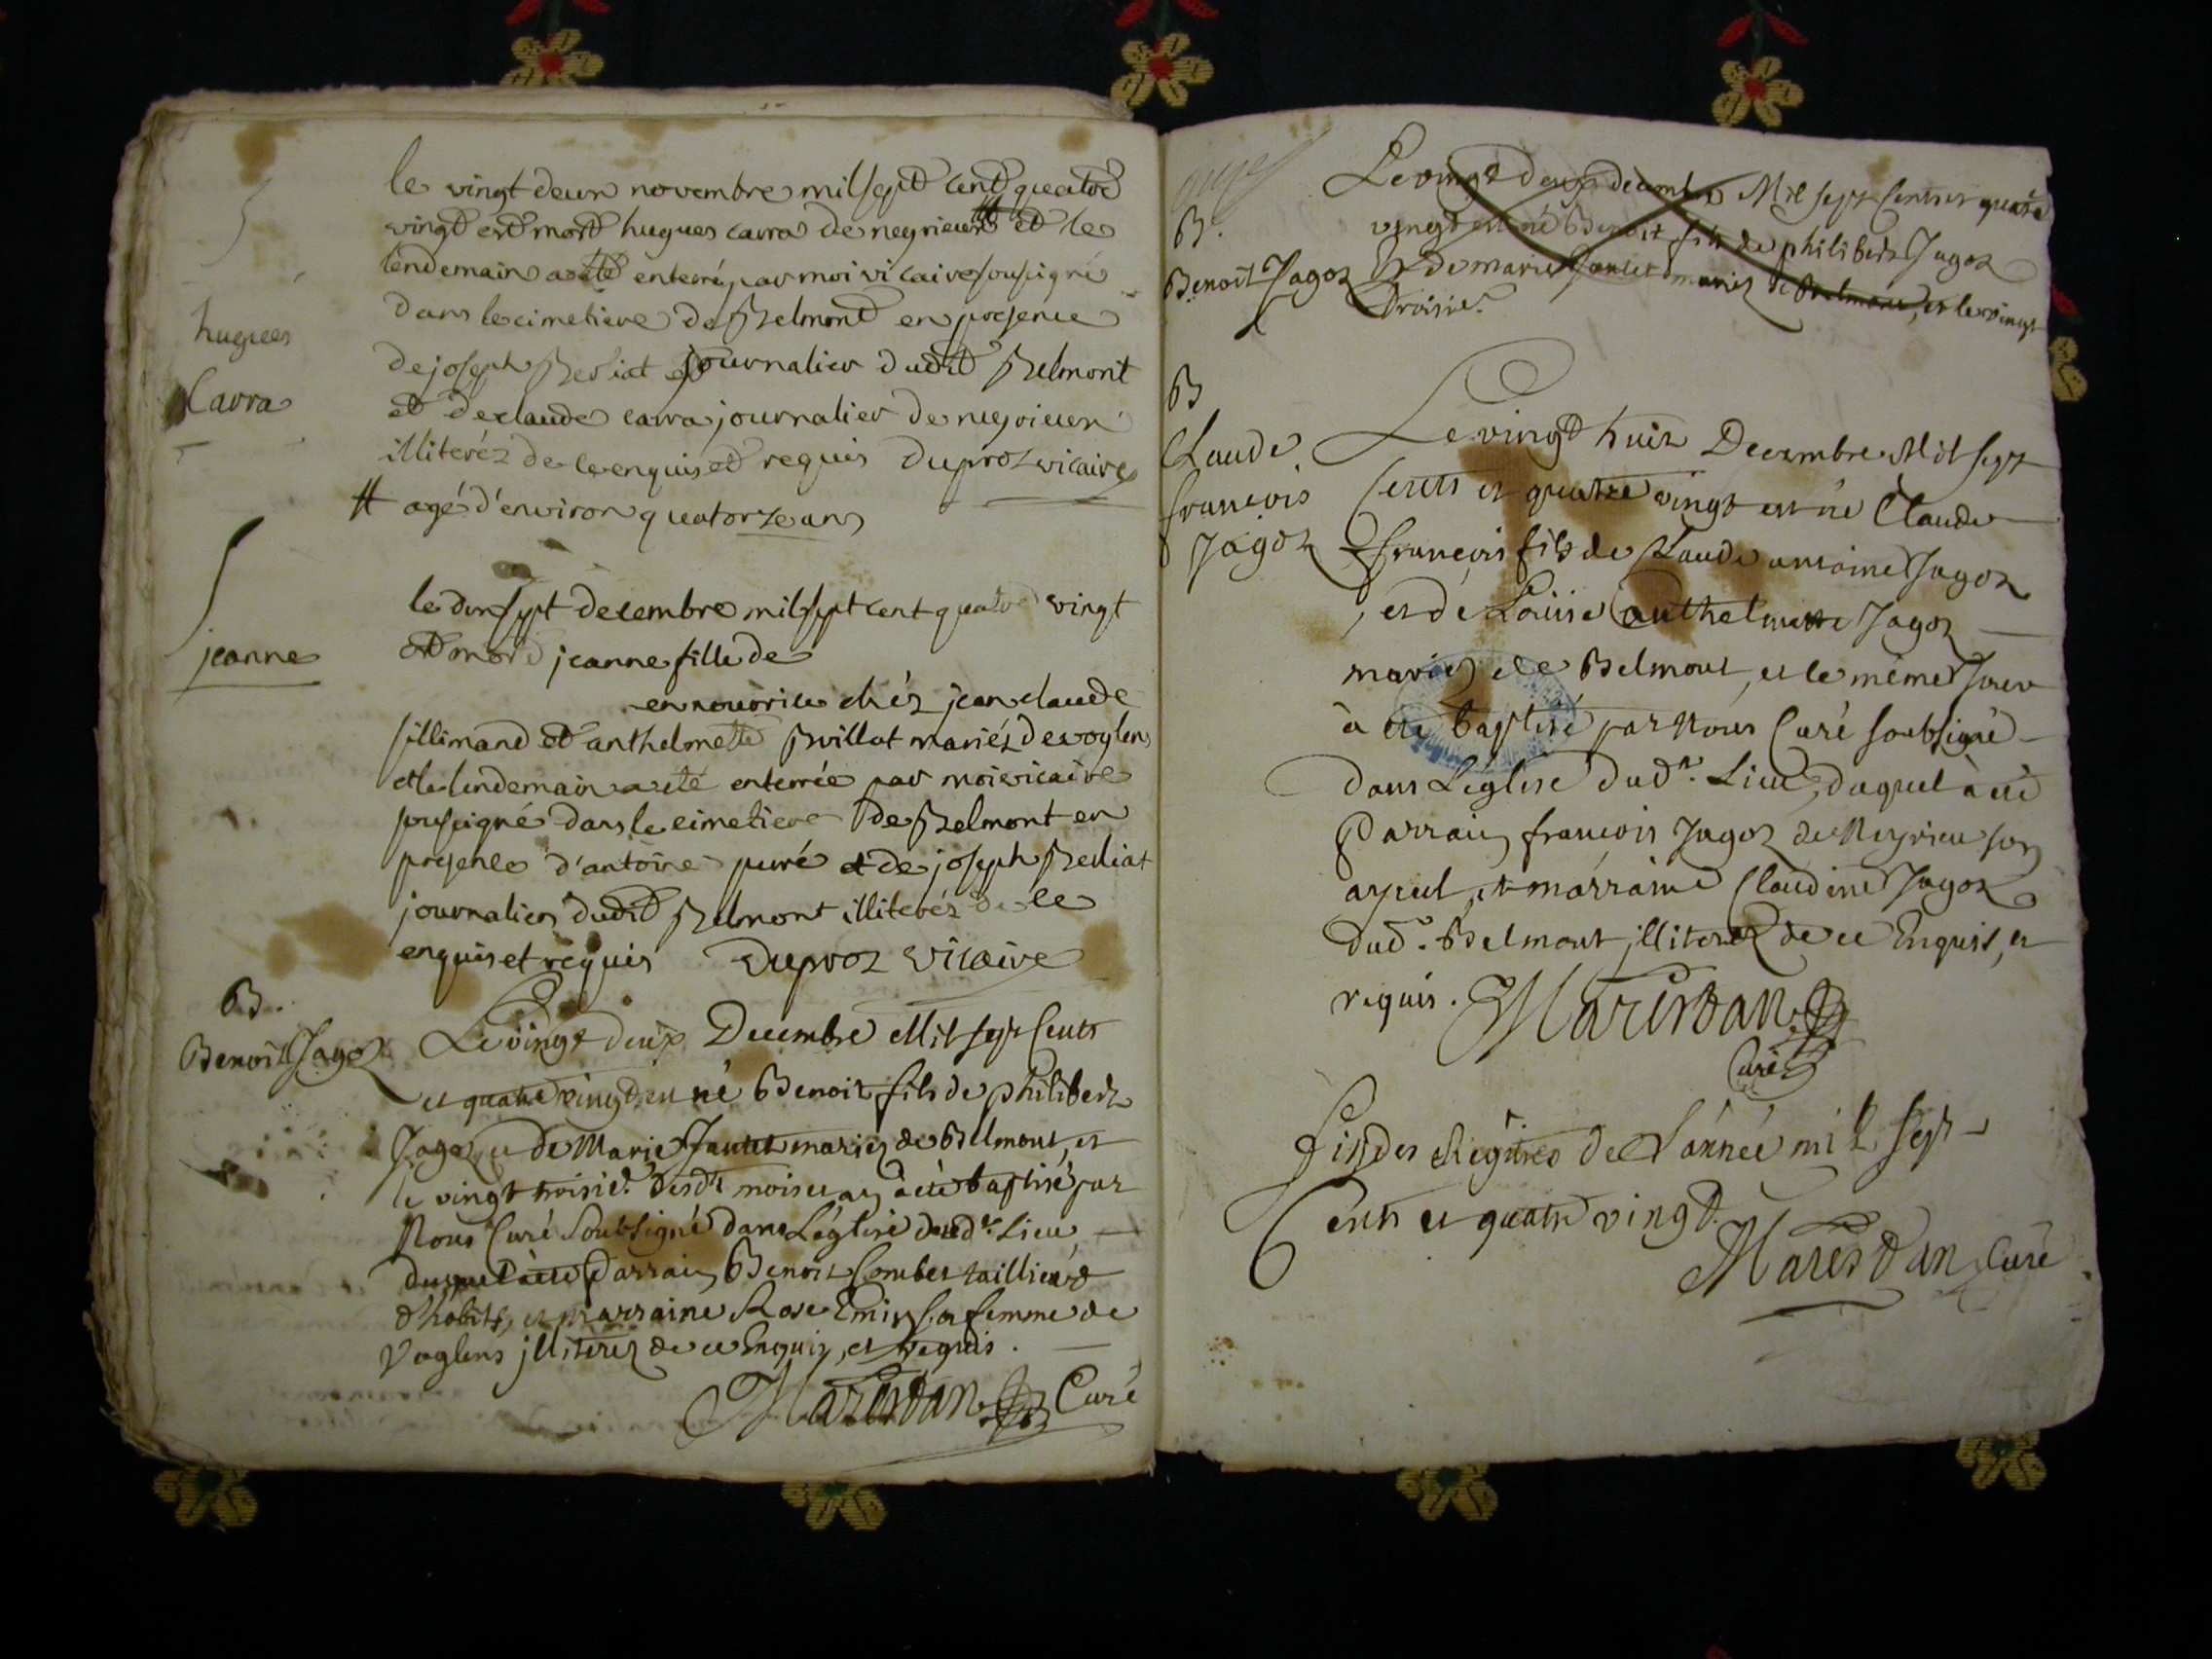 S
hugues
Carra
le vingt deux novembre mil sept cent quatre
vingt est mort hugues carra de neyrieux # et le
lendemain a été enterré par moi vicaire sousigné
dans le cimetiere de Belmont en presence
de joseph Belliat journalier dudit Belmont
et de claude carra journalier de neyrieux
illiterés de ce enquis et requis Duproz vicaire
# agé d'environ quatorze ans
S
jeanne
le dix sept decembre mil sept cent quatre vingt
est mort jeanne fille de
en nourrice chés jean claude
sillimand et anthelmette Brillat mariés de voglens
et le lendemain a été enterrée par moi vicaire
sousigné dans le cimetiere de Belmont en
presence d'antoine puré et de joseph Belliat
journaliers dudit Belmont illiterés de ce
enquis et requis Duproz vicaire
B.
Benoit Jagoz
Le vingt deux Decembre Mil sept Cents
et quatre vingt est né Benoit fils de philibert
Jagoz et de Marie Jantet mariez de Belmont, et
le vingt troisie. desdt mois et an à été baptisé par
Nous Curé Soubsigné dans L'église dudt. Lieu,
duquel à été Parrain Benoit Combet taillieur
d'habits, et marraine Rose Emin sa femme de
Voglens illiterez de ce Enquis, et requis.
Marestan Curé
B.
Benoit Jagoz
Le vingt deux decembre Mil sept Cents et quatre
vingt est né Benoit fils de philibert Jagoz
Et de marie Jantet mariez de Belmont, et le vingt
troisie.
B
Claude
françois
Jagoz
Le vingt huit Decembre Mil sept
Cents et quatre vingt est né Claude
françois fils de Claude antoine Jagoz
, et de Louise Anthelmette Jagoz
mariez de Belmont, et le même Jour
à été baptisé par Nous Curé soubsigné
dans L'église dudt. Lieu, duquel à été
Parrain françois Jagoz de Neyrieu son
ayeul, et marraine Claudine Jagoz
dud. Belmont illiterez de ce Enquis, et
requis. Marestan
Curé
fin des Registres de L'année mil sept
Cents et quatre vingt.
Marestan Curé